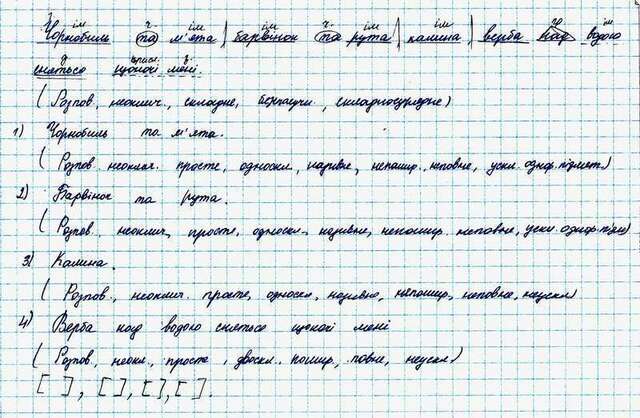 ім. ч. ім ім ч. ім ім ім пр ім
Чорнобиль та м'ята, барвінок та рута, калина, верба над водою
д присл. з.
сняться щоночі мені.
(Розпов, неоклич., складне, безспол., складносурядне)
1) Чорнобиль та м'ята.
(Розпов. неоклич. просте, односкл, називне, непошир, неповне, ускл. однор. підмет.)
2) Барвінок та рута.
(Розпов., неоклич, просте, односкл., називне, непошир. неповне, ускл. однор. підм)
3) Калина.
(Розпов., неоклич. просте, односкл, називне, непошир, неповне, неускл)
4) Верба над водою сняться щоночі мені
(Розпов, неокл., просте, двоскл. пошир, повне, неускл)
[ ], [ ], [ ], [ ].